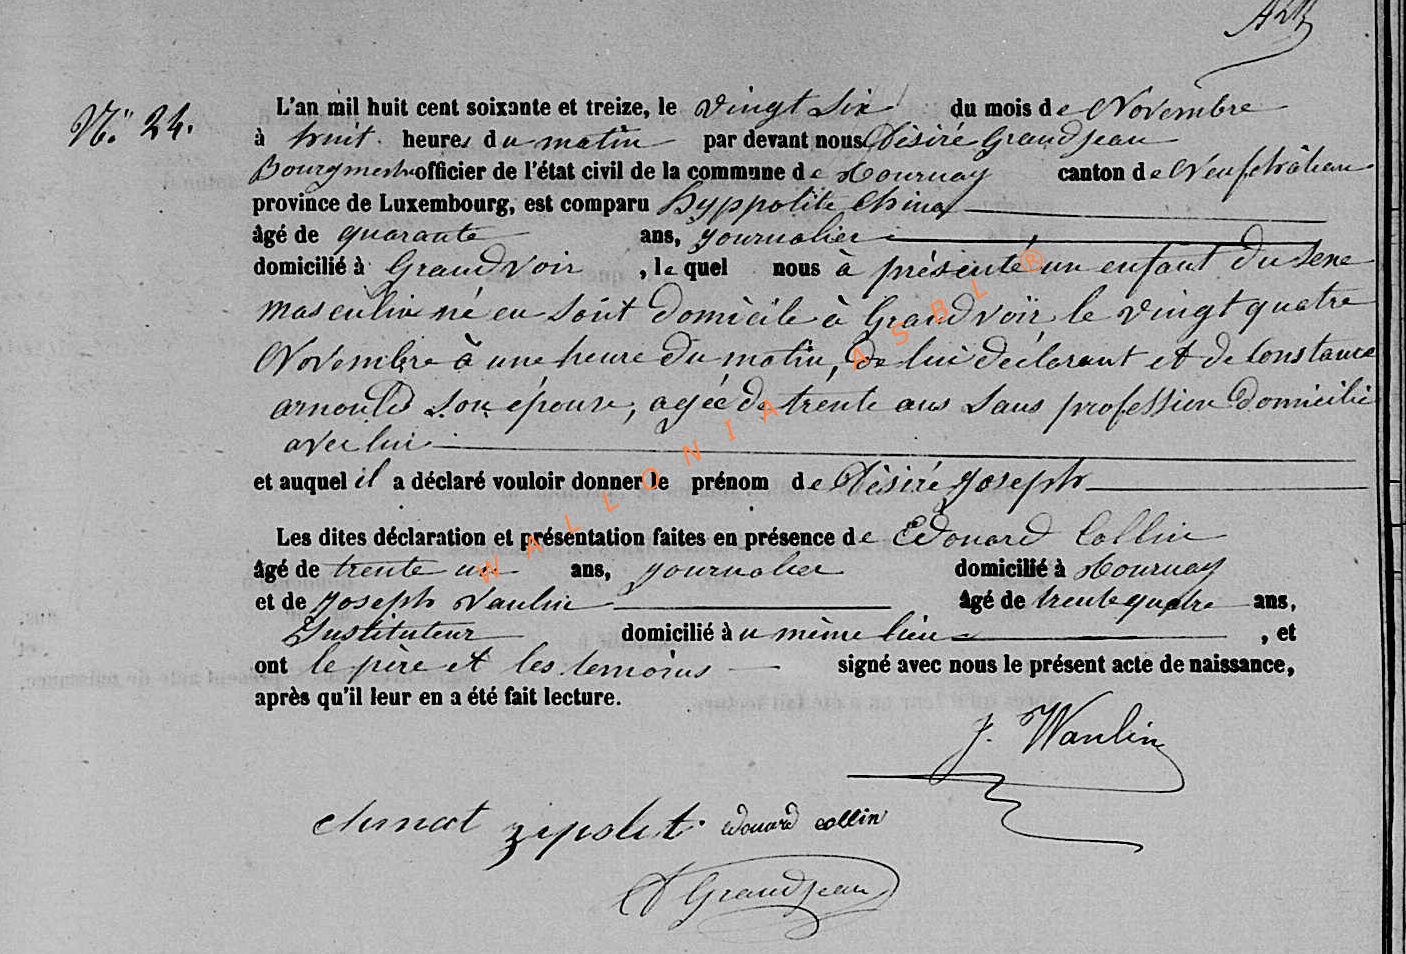 N.° 24.
L'an mil huit cent soixante et treize, le vingt six du mois de Novembre
à huit heures du matin par devant nous Désiré Grandjean
Bourgmestre officier de l'état civil de la commune de Tournay canton de Neufchâteau
province de Luxembourg, est comparu hyppolite Chinot
âgé de quarante ans, journalier
domicilié à Grandvoir, le quel nous à présenté un enfant du sexe
masculin né en soût domicile à Grandvoir le vingt quatre
Novembre à une heure du matin, de lui déclarant et de Constance
arnould son épouse, agée de trente ans sans profession domicilié
avec lui
et auquel il a déclaré vouloir donner le prénom de Désiré Joseph
Les dites déclaration et présentation faites en présence de Edouard Collin
âgé de trente un ans, journalier domicilié à Tournay
et de Joseph Vaulin âgé de trente quatre ans,
Instituteur domicilié au même lieu, et
ont le père et les temoins signé avec nous le présent acte de naissance,
après qu'il leur en a été fait lecture.
J. Waulin
chinot zipolit edouard collin
D Grandjean
WALLONIA ASBL ®